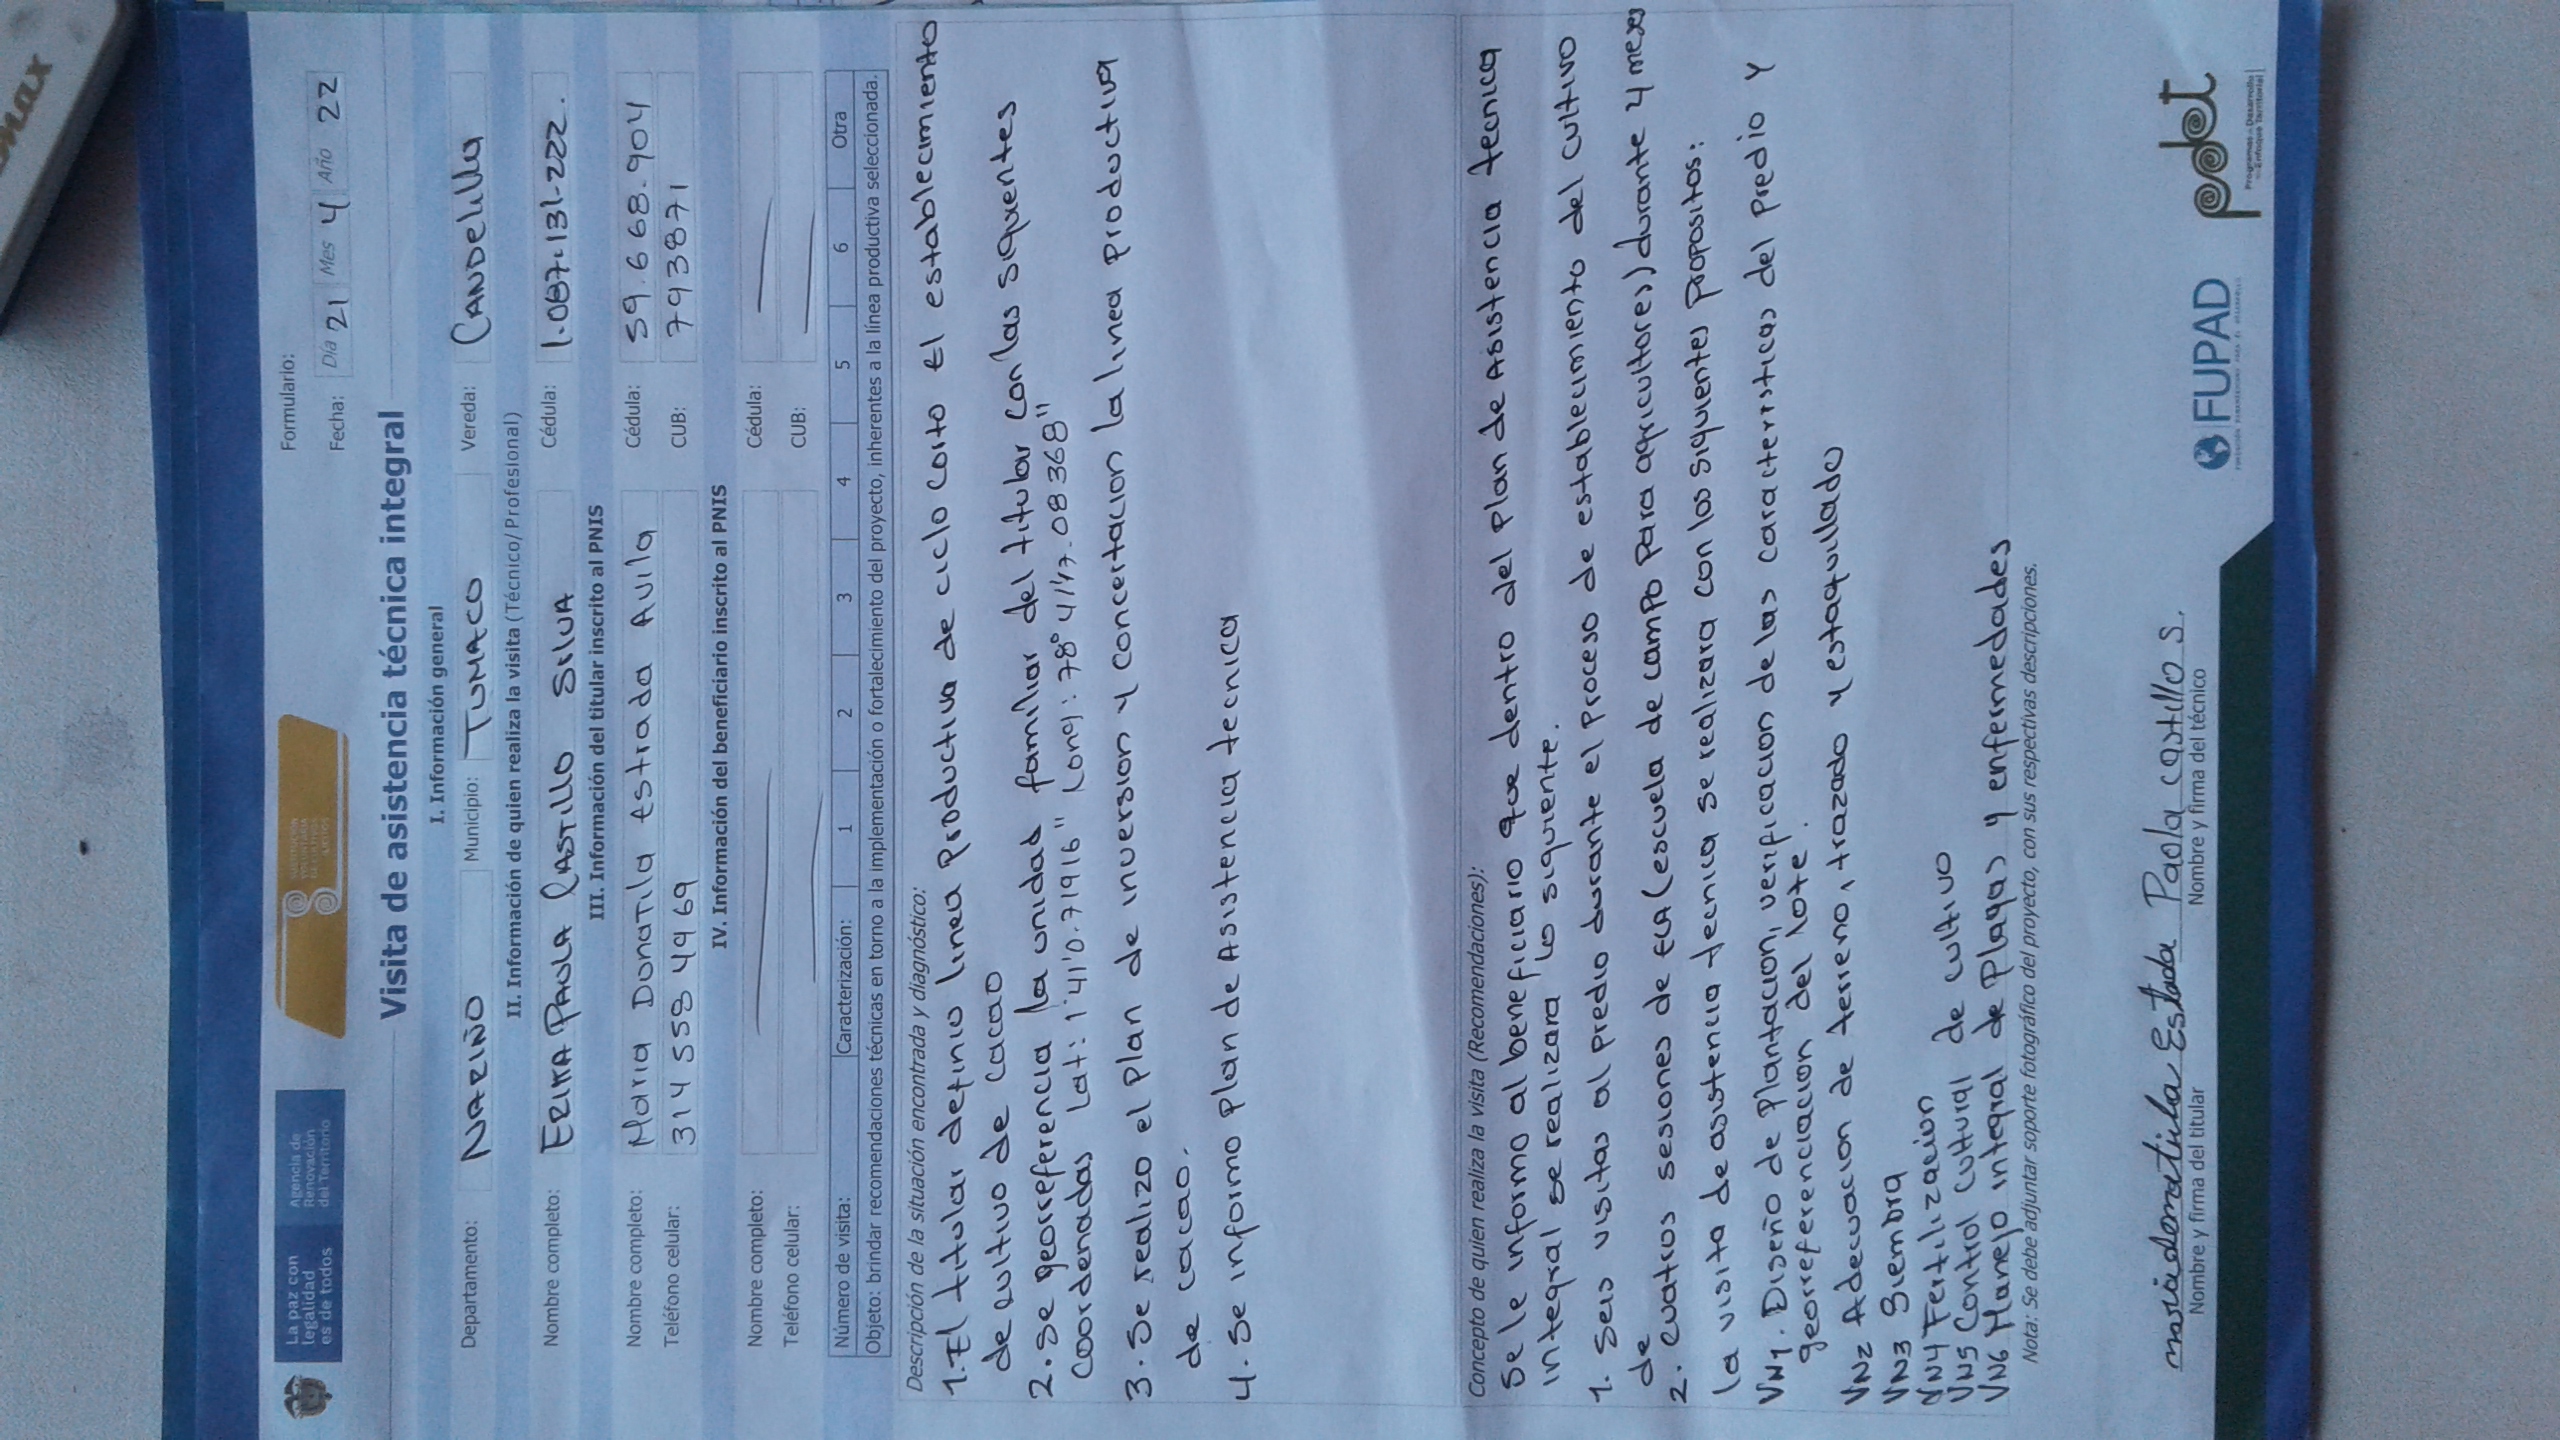 max
La paz con
legalidad
es de todos
Agencia de
Renovación
del Territorio
SUSTITUCIÓN
VOLUNTARIA
DE CULTIVOS
ILÍCITOS
Formulario:
Fecha: Día 21 Mes 4 Año 22
Visita de asistencia técnica integral
I. Información general
Departamento: NARIÑO Municipio: TUMACO Vereda: CANDELILLA
II. Información de quien realiza la visita (Técnico/ Profesional)
Nombre completo: ERIKA PAOLA CASTILLO SILVA Cédula: 1.087.131.222.
III. Información del titular inscrito al PNIS
Nombre completo: Maria Donatila estrada Avila Cédula: 59.668.904
Teléfono celular: 314 558 4969 CUB: 7943871
IV. Información del beneficiario inscrito al PNIS
Nombre completo: Cédula:
Teléfono celular: CUB:
Número de visita: Caracterización: 1 2 3 4 5 6 Otra
Objeto: brindar recomendaciones técnicas en torno a la implementación o fortalecimiento del proyecto, inherentes a la línea productiva seleccionada.
Descripción de la situación encontrada y diagnóstico:
1. El titular definio linea productiva de ciclo corto el establecimiento
de cultivo de cacao
2. se georreferencia la unidad familiar del titular con las siquentes
coordenadas Lat: 1°41'0.71916" Long: 78°41'47.08368"
3. Se realizo el Plan de inversion y concertacion la linea productiva
de cacao.
4. Se informo plan de Asistencia tecnica
Concepto de quien realiza la visita (Recomendaciones):
Se le informo al beneficiario que dentro del plan de Asistencia tecnica
integral se realizara lo siquiente.
1. Seis visitas al predio durante el proceso de establecimiento del cultivo
de
2. cuatros sesiones de ECA (escuela de campo para agricultores) durante 4 meses
la visita de asistencia tecnica se realizara con los siquientes propositos:
VN1. Diseño de Plantacion, verificacion de las caracterrsticas del Predio y
georreferenciacion del lote.
VN2 Adecuacion de terreno, trazado y estaquillado
VN3 Siembra
VN4 Fertilizacion
VN5 Control cultural de cultivo
VN6 Manejo integral de Plagas y enfermedades
Nota: Se debe adjuntar soporte fotográfico del proyecto, con sus respectivas descripciones.
maria donatila Estrada Paola castillo S.
Nombre y firma del titular Nombre y firma del técnico
FUPAD
pdet
Programas de Desarrollo
con Enfoque Territorial